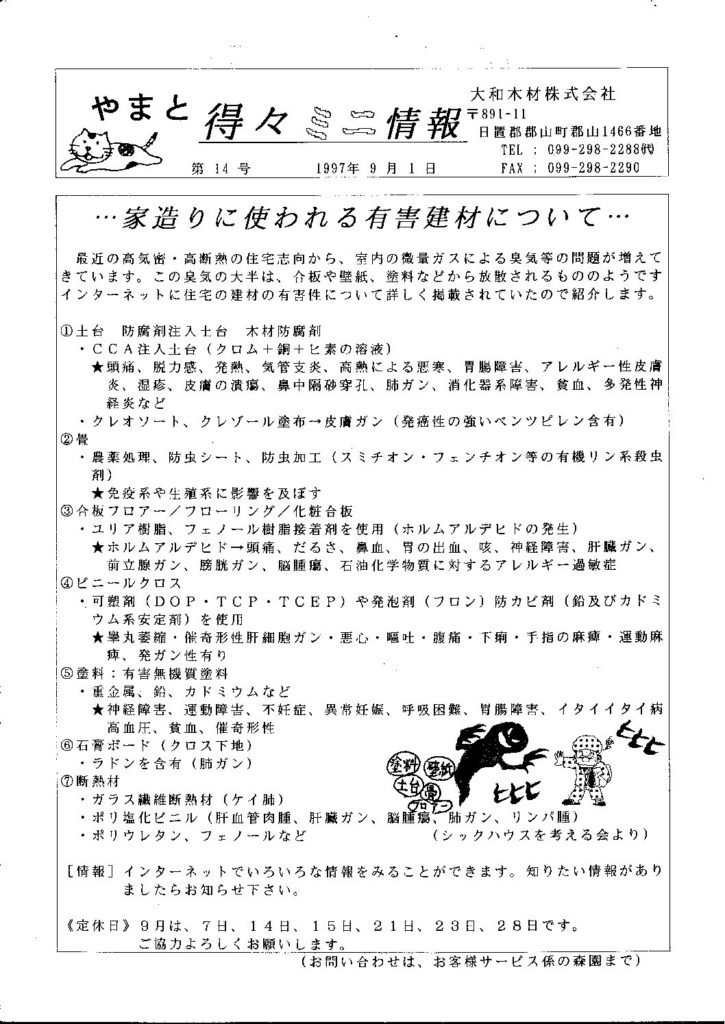 やまと 得々ミニ情報
大和木材株式会社
〒891-11
日置郡郡山町郡山1466番地
TEL : 099-298-2288㈹
FAX : 099-298-2290
第14号 1997年9月1日
…家造りに使われる有害建材について…
最近の高気密・高断熱の住宅志向から、室内の微量ガスによる臭気等の問題が増えて
きています。この臭気の大半は、合板や壁紙、塗料などから放散されるもののようです
インターネットに住宅の建材の有害性について詳しく掲載されていたので紹介します。
①土台 防腐剤注入土台 木材防腐剤
・CCA注入土台(クロム+銅+ヒ素の溶液)
★頭痛、脱力感、発熱、気管支炎、高熱による悪寒、胃腸障害、アレルギー性皮膚
炎、湿疹、皮膚の潰瘍、鼻中隔砂穿孔、肺ガン、消化器系障害、貧血、多発性神
経炎など
・クレオソート、クレゾール塗布→皮膚ガン(発癌性の強いベンツピレン含有)
②畳
・農薬処理、防虫シート、防虫加工(スミチオン・フェンチオン等の有機リン系殺虫
剤)
★免疫系や生殖系に影響を及ぼす
③合板フロアー/フローリング/化粧合板
・ユリア樹脂、フェノール樹脂接着剤を使用(ホルムアルデヒドの発生)
★ホルムアルデヒド→頭痛、だるさ、鼻血、胃の出血、咳、神経障害、肝臓ガン、
前立腺ガン、膀胱ガン、脳腫瘍、石油化学物質に対するアレルギー過敏症
④ビニールクロス
・可塑剤(DOP・TCP・TCEP)や発泡剤(フロン)防カビ剤(鉛及びカドミ
ウム系安定剤)を使用
★睾丸萎縮・催奇形性肝細胞ガン・悪心・嘔吐・腹痛・下痢・手指の麻痺・運動麻
痺、発ガン性有り
⑤塗料:有害無機質塗料
・重金属、鉛、カドミウムなど
★神経障害、運動障害、不妊症、異常妊娠、呼吸困難、胃腸障害、イタイイタイ病
高血圧、貧血、催奇形性
⑥石膏ボード(クロス下地)
・ラドンを含有(肺ガン)
⑦断熱材
・ガラス繊維断熱材(ケイ肺)
・ポリ塩化ビニル(肝血管肉腫、肝臓ガン、脳腫瘍、肺ガン、リンパ腫)
・ポリウレタン、フェノールなど (シックハウスを考える会より)
塗料 壁紙
土台 畳
フロアー
ヒヒヒ
ヒヒヒ
[情報]インターネットでいろいろな情報をみることができます。知りたい情報があり
ましたらお知らせ下さい。
《定休日》9月は、7日、14日、15日、21日、23日、28日です。
ご協力よろしくお願いします。
(お問い合わせは、お客様サービス係の森園まで)